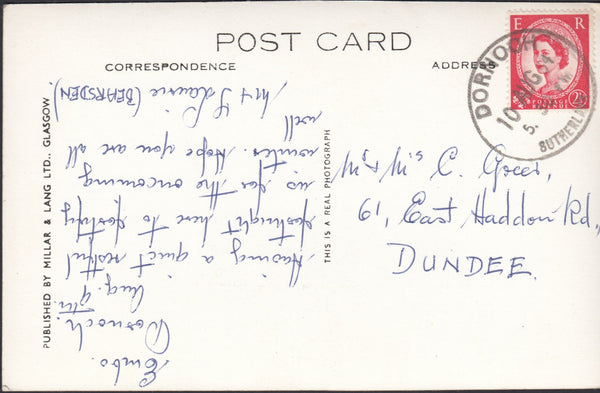 POST CARD
CORRESPONDENCE
ADDRESS
Embo.
Dornoch.
Aug. 9th.
Having a quiet restful
fortnight here to fortify
us for the oncoming
winter. Hope you are all
well
Laurie (BEARSDEN)
PUBLISHED BY MILLAR & LANG LTD., GLASGOW
THIS IS A REAL PHOTOGRAPH
E R
POSTAGE
2½
DORNOCH
10 AUG
SUTHERLAND
Mr & Mrs C. Greer,
61, East Haddon Rd,
DUNDEE.